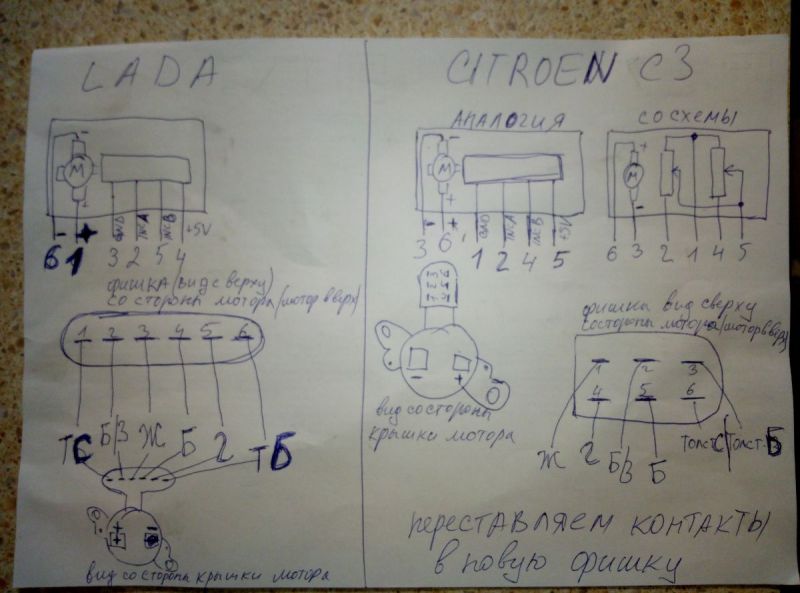 LADA
M
-
+
GND
INC A
INC B
+5V
6 1 3 2 5 4
фишка (вид сверху)
со стороны мотора (мотор вверх)
1 2 3 4 5 6
ТС Б/З Ж Б Г ТБ
+ -
вид со стороны крышки мотора
CITROEN C3
АНАЛОГИЯ
M
-
+
GND
INC A
INC B
+5V
3 6 1 2 4 5
СО СХЕМЫ
M
+
-
6 3 2 1 4 5
1 2 3
4 5 6
- +
вид со стороны
крышки мотора
фишка вид сверху
со стороны мотора (мотор вверх)
1 2 3
4 5 6
Ж Г Б/З Б Толст С Толст Б
переставляем контакты
в новую фишку